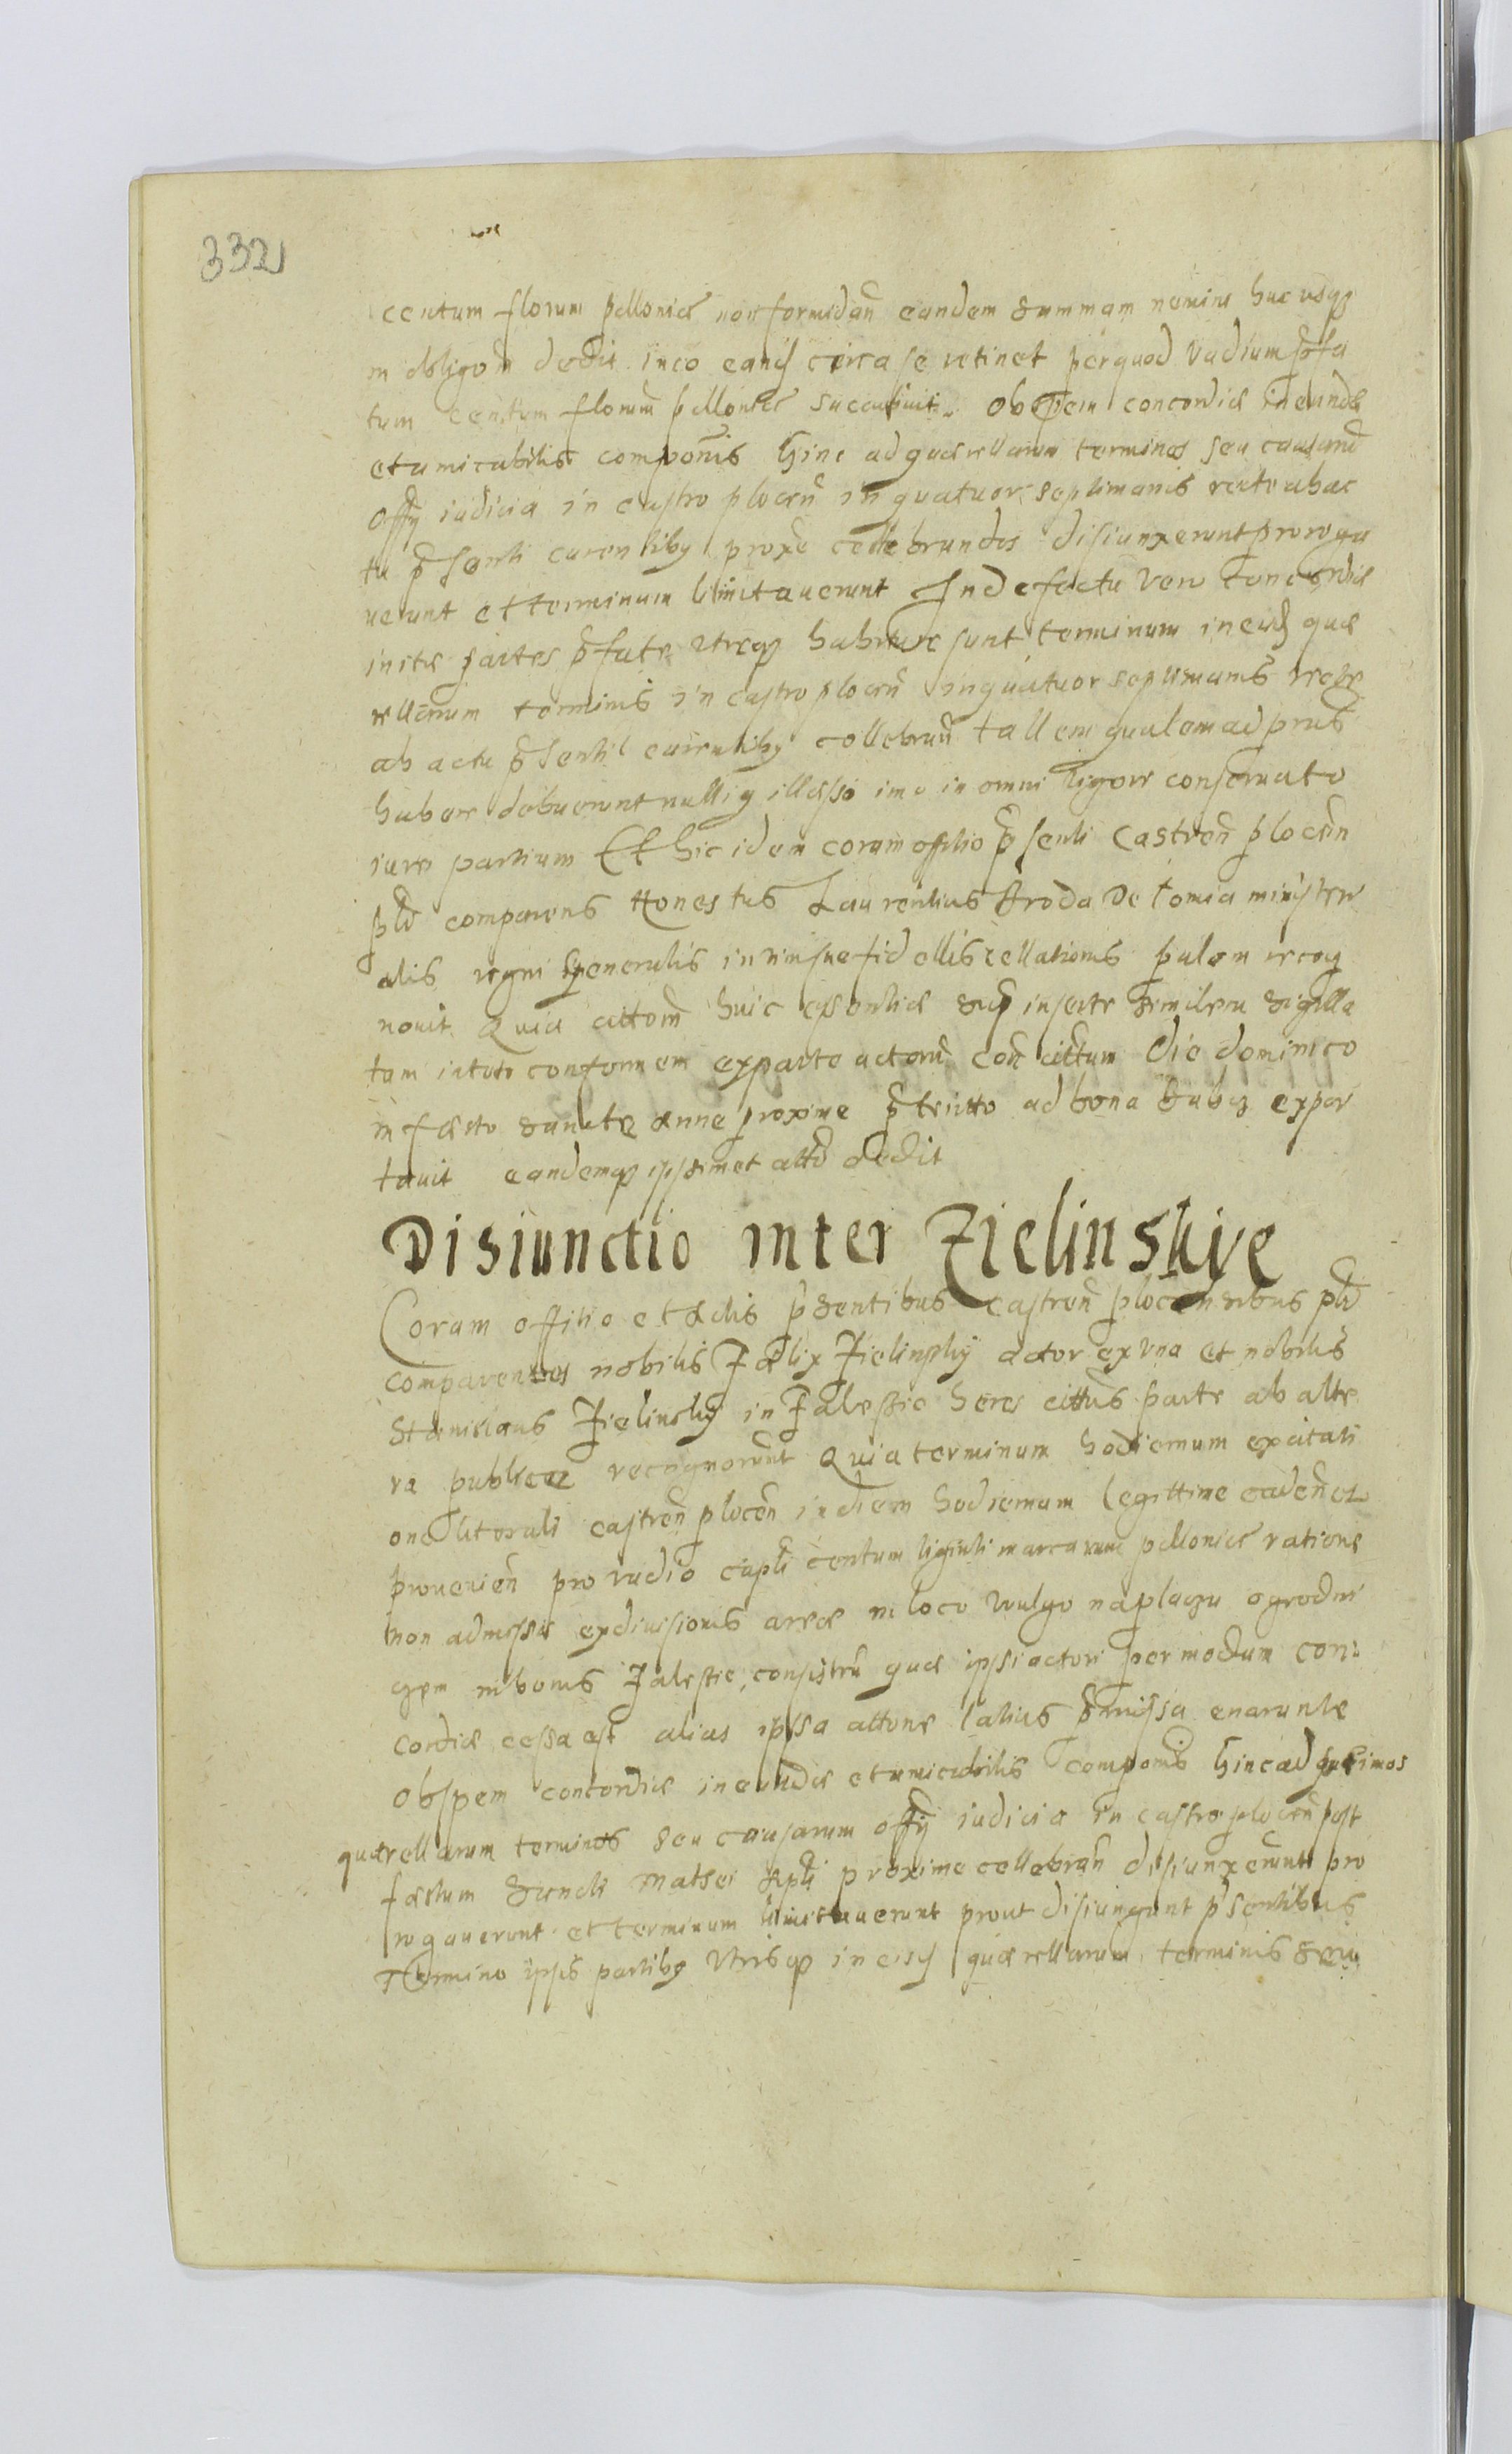 332
centum florum pollonice non formidan eandem summam nemini huc usq
in obligon dedit imo eand circa se retinet per quod vadium pfa
tum centum florum pollonice succubuit. Ob spem concordiæ ineundæ
et amicabilis componis Hinc ad quærellarum terminos seu causarum
offy iudicia in castro plocen in quatuor septimanis recte ab ac
tu pſenti curentiby proxe cellebrandos disiunxerunt proroga
uerunt et terminum limitauerunt In defectu vero concordiæ
initæ partes pfate utreq habituræ sunt terminum in eisd que
rellarum terminis in castro plocen in quatuor septimanis recte
ab actu pſenti curentiby cellebran tallem qualem ad præs
habere debuerunt nulliq illæsso imo in omni rigore conseruato
iure partium Et hic idem coram offitio pſenti Castren plocen
plr comparens Honestus Laurentius Broda de Lomia ministeri
alis regni generalis in vim suæ fidellis rellationis palam recog
nouit Quia cittom huic essentiæ insertæ similem sigilla
tam in toto conformem ex parte actoris con cittum die dominico
in fæsto sanctæ Annæ proxime pteritto ad bona expor
tauit eandemq ipsemet dedit
Disiunctio inter Zielinskie
Coram offitio et actis pſentibus castren plocensibus plr
comparentes nobilis Fælix Zielinsky actor ex vna et nobilis
Stanislaus Zielinsky in Zalessie heres cittus parte ab alte
ra publice recognorunt Quia terminum hodiernum ex citati
one literali castren plocen in diem hodiernum legittime caden et
prouenien pro vadio centum viginti marcarum pollonice ratione
non admissæ exdiuisionis areæ in loco wulgo na placzu ogrodni
czem in bonis Zalessie consisten quæ ipsi actori per modum con:
cordiæ cessa est alias ipsa attone latius pmissa enarante
Ob spem concordiæ ineundæ et amicabilis componis Hinc ad proximos
quærellarum terminos seu causarum offy iudicia in castro plocen post
fæstum Sancti Mathei Apli proxime cellebran disiunxerunt pro
rogauerunt et terminum limitauerunt prout disiungunt pſentibus
Termino ipsis partiby vtrisq in eisd quærellarum terminis seu